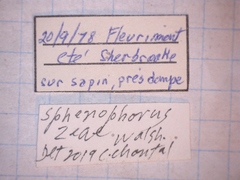 20/9/78 Fleurimont
eté Sherbrooke
sur sapin, pres lampe
Sphenophorus
Zeae. Walsh.
Det 2019 C. chantal